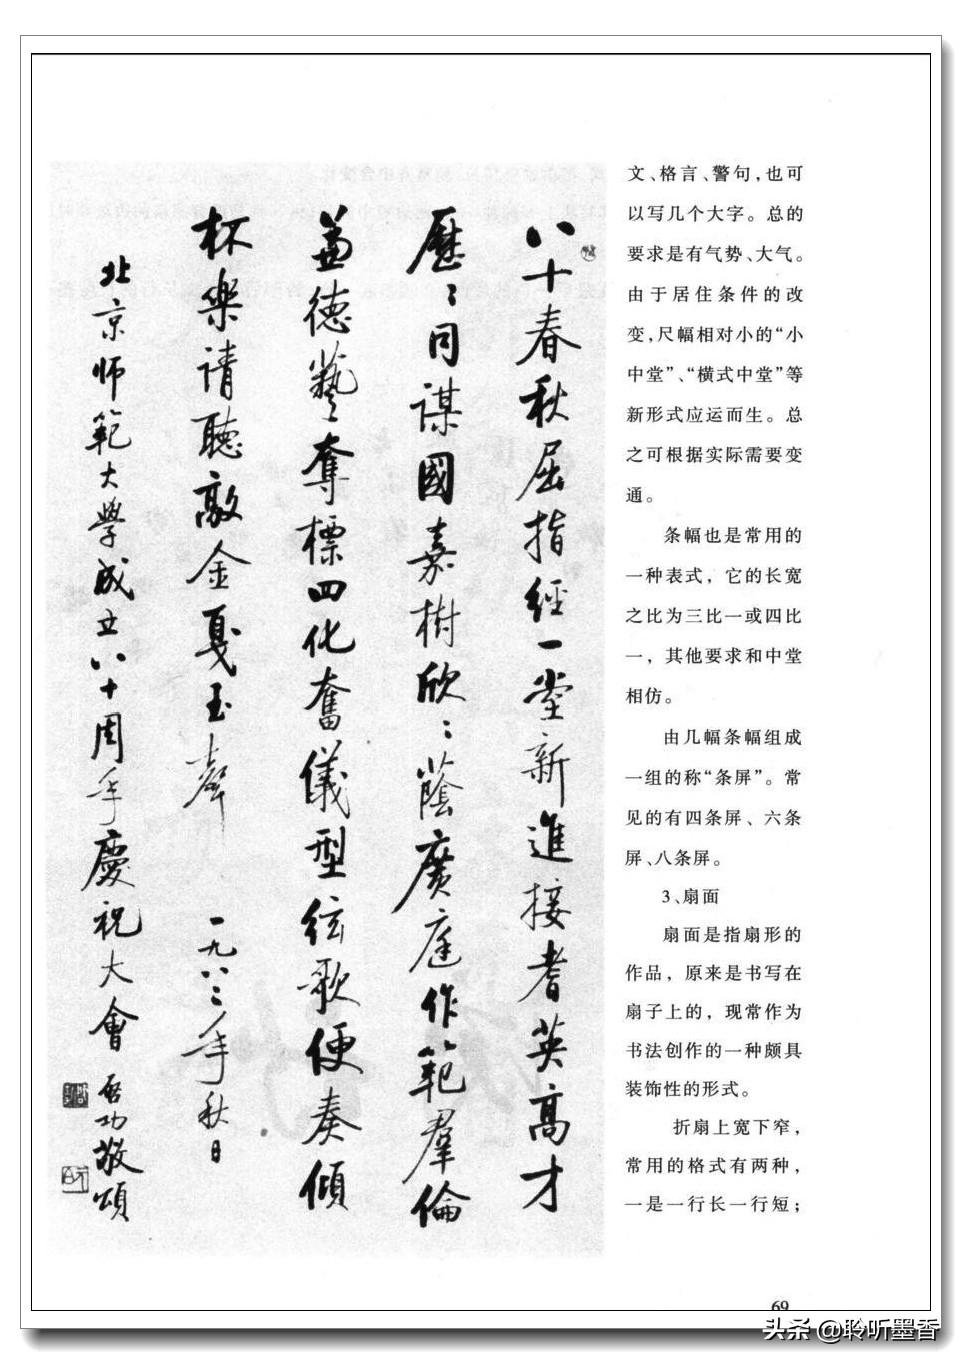 八十春秋屈指經一堂新進接耆英高才
歷〻同謀國嘉樹欣〻蔭廣庭作範羣倫
兼德藝奪標四化奮儀型弦歌便奏傾
杯樂請聽敲金戛玉聲 一九八二年秋日
北京師範大學成立八十周年慶祝大會 启功敬頌
文、格言、警句，也可
以写几个大字。总的
要求是有气势、大气。
由于居住条件的改
变，尺幅相对小的“小
中堂”、“横式中堂”等
新形式应运而生。总
之可根据实际需要变
通。
条幅也是常用的
一种表式，它的长宽
之比为三比一或四比
一，其他要求和中堂
相仿。
由几幅条幅组成
一组的称“条屏”。常
见的有四条屏、六条
屏、八条屏。
3、扇面
扇面是指扇形的
作品，原来是书写在
扇子上的，现常作为
书法创作的一种颇具
装饰性的形式。
折扇上宽下窄，
常用的格式有两种，
一是一行长一行短；
69
头条 @聆听墨香